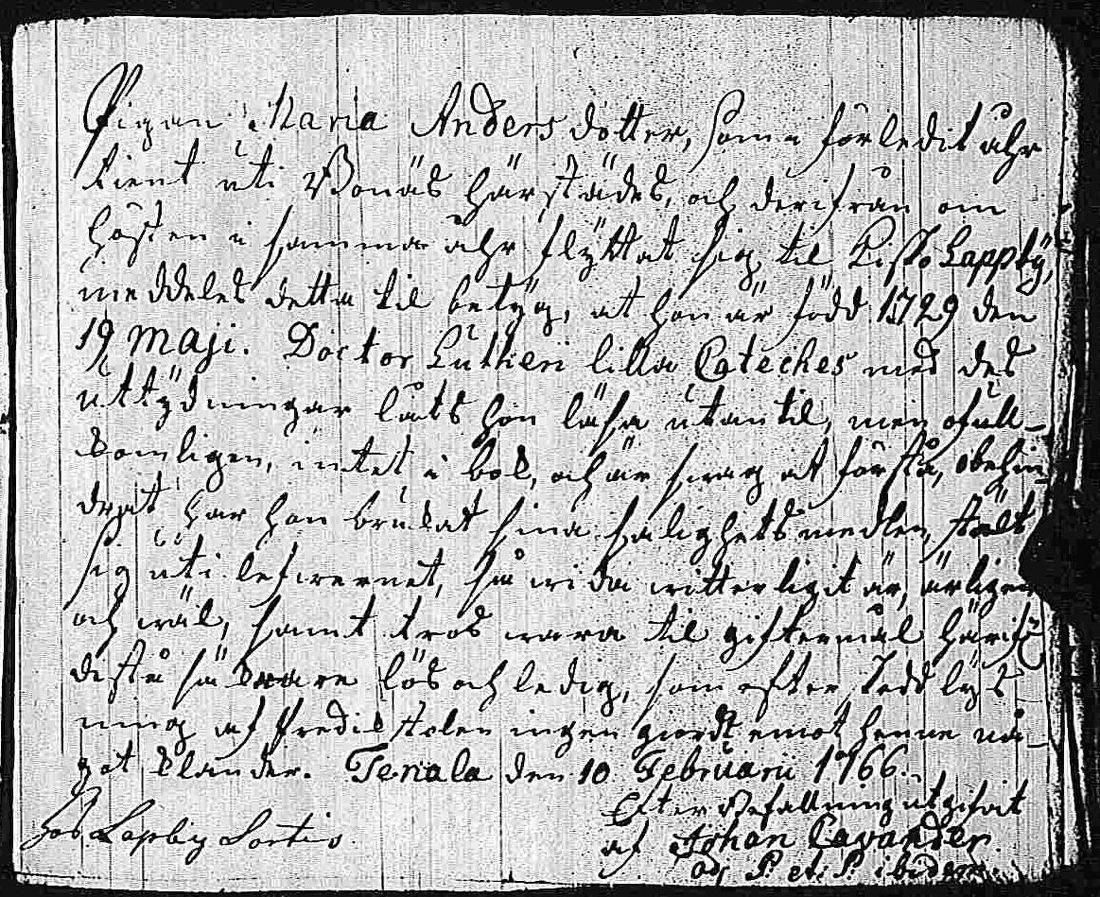 Pigan Maria Anders dotter, som i förledit åhr
tient uti Bonäs härstädes, och derifrån om
hösten i samma åhr flÿttat sig til Lappbÿ,
meddeles detta til betÿg, at hon är född 1729 den
19 Maji. Doctor Lutheri lilla Cateches med des
uttÿdningar låts hon läsa utantil, men ofull-
komligen, intet i bok, och är swag at förstå, obehin-
drat har hon brukat sina salighetsmedlen, stält
sig uti lefwernet, så wida witterligit är, ärligen
och wäl, samt tros wara til giftermål härifr
desto säkrare lös och ledig, som efter skedd lÿs-
ning af Predikstolen ingen giordt emot henne nå-
got klander. Tenala den 10 Februarii 1766.
Efter Befallning utgifwit
af Johan Cavander
adj. P. et. P. ibidem
hos Lapby